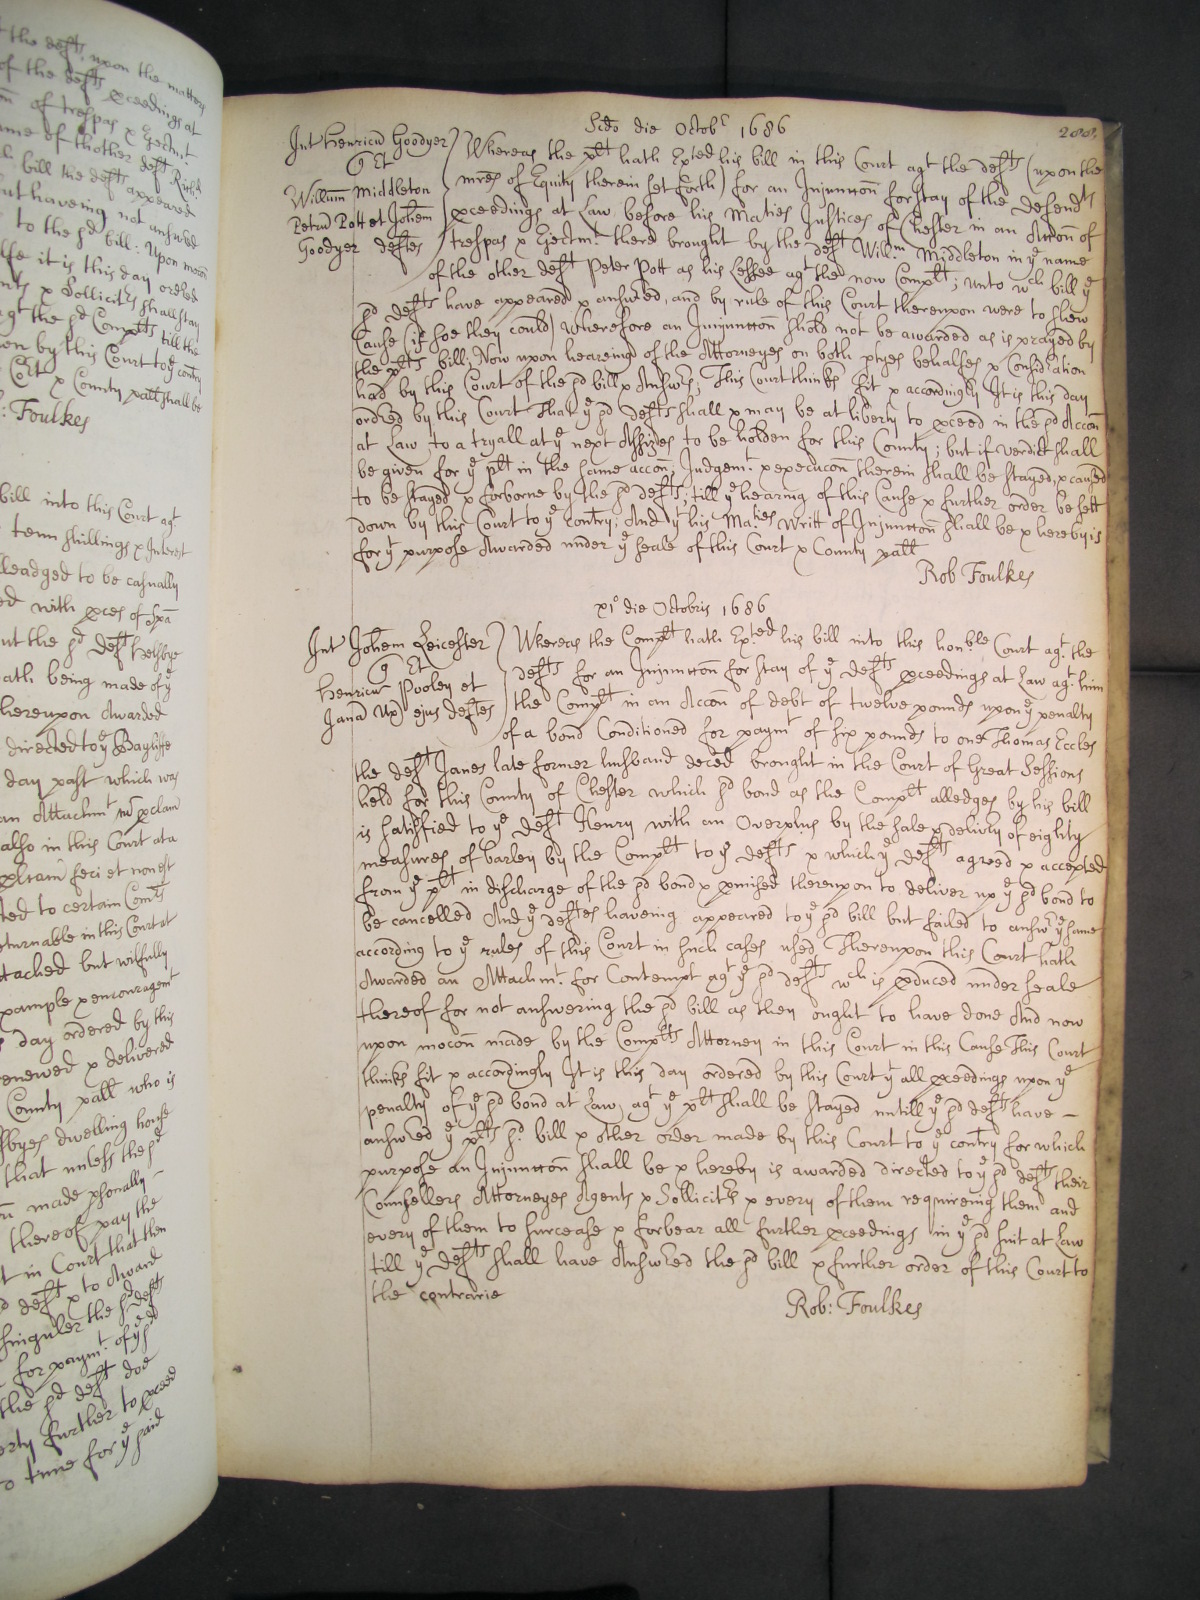 the defts, upon the matters
of the defts pceedings at
of trespas & Ejectmt
ame of thother deft Rich:d
bill the defts appeared
but haveing not answred
to the sd bill. Upon mocon
it is this day ordred
& Sollicitrs shall stay
agt the sd Complts till the
on by this Court to ye contry
& County patt shall be
: Foulkes
bill into this Court agt
tenn shillings & Interest
lleadged to be casually
ed with pces of
ut the sd deft Helsbye
ath being made of ye
hereupon Awarded
directed to ye Bayliffe
day past which was
an Attachmt wt pclam
also in this Court at a
feci et non est
ted to certain Comrs
eturnable in this Court at
ttached but wilfully
xample & encouragemt
day ordered by this
enewed & delivered
County patt who is
sbyes dwelling house
that unless the sd
made psonally –
thereof pay the
t in Court that then
deft & to Award
singuler the sd defts
for paymt. of ye sd
the sd deft doe
erty further to pceed
time for ye said
288
Scdo die Octobr 1686
Int Henricu Goodyer
q Et
Willum Middleton
Petru Pott et Johem
Goodyer deftes
Whereas the plt hath Exted his bill in this Court agt the defts (upon the
mres of Equity therein set forth) for an Injunccon for stay of the defendts
pceedings at Law before his Maties Justices of Chester in an Accon of
trespas & Ejectmt. there brought by the deft Willm. Middleton in ye name
of the other deft Peter Pott as his Lessee agt the now Complt; unto wch bill ye
sd defts have appeared & answred, and by rule of this Court thereupon were to shew
Cause (if soe they could) wherefore an Injunccon shold not be awarded as is prayed by
the plts bill; Now upon heareing of the Attorneyes on both ptyes behalfes & Consideration
had by this Court of the sd bill & Answrs; This Court thinkes fit & accordingly It is this day
ordred by this Court That ye sd defts shall & may be at liberty to pceed in the sd Accon
at Law to a tryall at ye next Assizes to be holden for this County; but if verdict shall
be given for ye plt in the same accon, Judgemt. & execucon therein shall be stayed, & caused
to be stayed & forborne by the sd defts; till ye hearing of this Cause & further order be sett
down by this Court to ye contry; And yt his Maties Writt of Injunccon shall be & hereby is
for yt purpose Awarded under ye seale of this Court & County patt
Rob Foulkes
xi° die Octobris 1686
Int Johem Leicester
q Et
Henricu Pooley et
Jana Ux ejus deftes
Whereas the Complt hath Exted his bill into this honble Court agt. the
defts for an Injunccon for stay of ye defts pceedings at Law agt. him
the Complt in an Accon of debt of twelve pounds upon ye penalty
of a bond Conditioned for paymt of six pounds to one Thomas Eccles
the deft Janes late former husband deced brought in the Court of Great Sessions
held for this County of Chester which sd bond as the Complt alledges by his bill
is satisfied to ye deft Henry with an Overplus by the sale & delivry of eighty
measures of barley by the Complt to ye defts & which ye defts agreed & accepted
from ye plt in discharge of the sd bond & pmised thereupon to deliver up ye sd bond to
be cancelled And ye deftes haveing appeared to ye sd bill but failed to answr ye same
according to ye rules of this Court in such cases used Thereupon this Court hath
Awarded an Attachmt. for Contempt agt ye sd deft wch is pduced under seale
thereof for not answering the sd bill as they ought to have done And now
upon mocon made by the Complts Attorney in this Court in this Cause This Court
thinkes fit & accordingly It is this day ordered by this Court yt all pceedings upon ye
penalty of ye sd bond at Law agt ye plt shall be stayed untill ye sd defts have –
answred ye plts sd. bill & other order made by this Court to ye contry for which
purpose an Injunccon shall be & hereby is awarded directed to ye sd defts their
Counsellers Attorneyes Agents & Sollicitrs & every of them requireing them and
every of them to surcease & forbear all further pceedings in ye sd suit at Law
till ye defts shall have Answred the sd bill & further order of this Court to
the contrarie
Rob: Foulkes